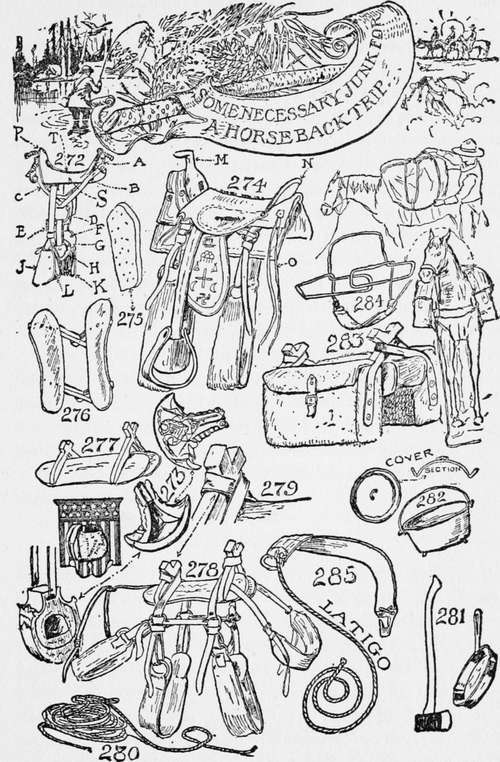 SOME NECESSARY JUNK FO
A HORSEBACK TRIP.
R
T
272
A
M
N
C
S
B
274
E
D
F
G
O
J
H
K
L
275
284
276
283
277
273
279
COVER
SECTION
282
278
285
LATIGO
281
280